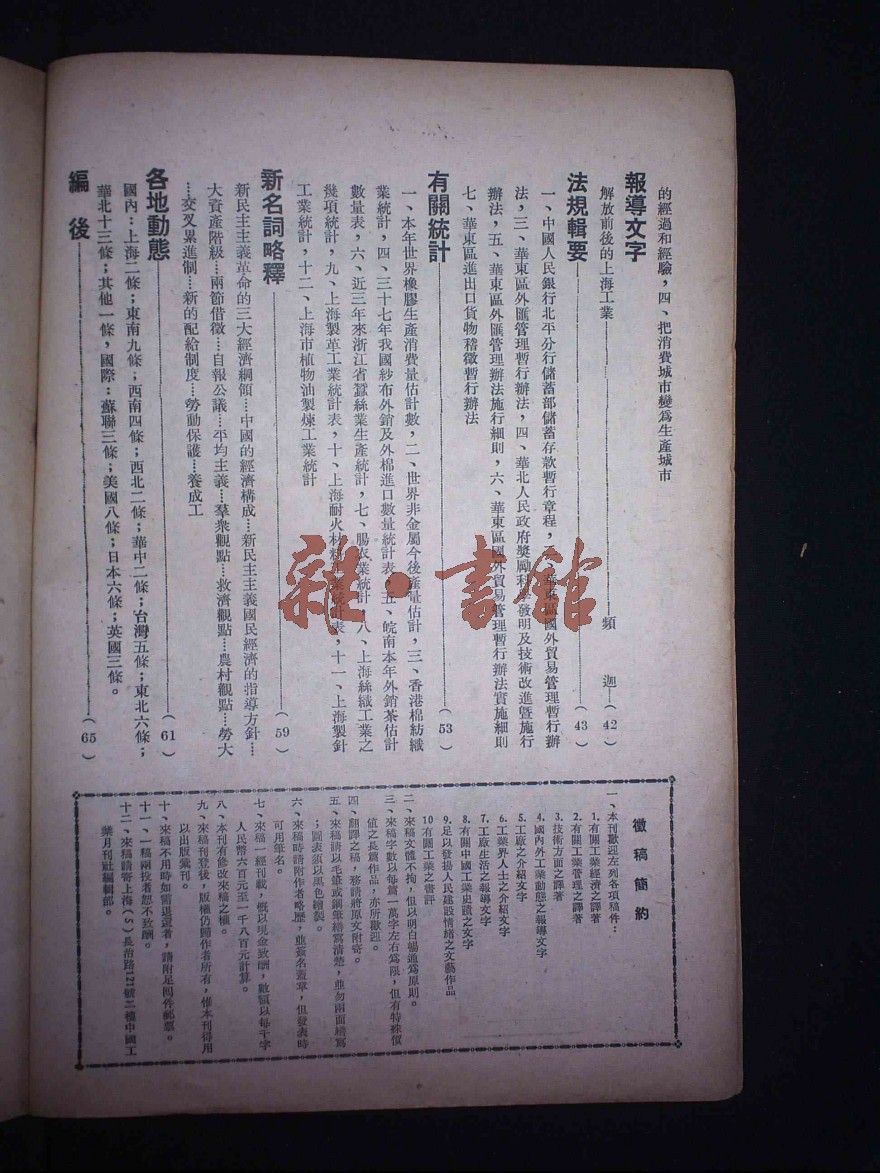 的經過和經驗，四、把消費城市變爲生產城市
報導文字
解放前後的上海工業——頻　迦—（42）
法規輯要——（43）
一、中國人民銀行北平分行儲蓄部儲蓄存款暫行章程，二、華東區國外貿易管理暫行辦
法，三、華東區外匯管理暫行辦法，四、華北人民政府獎勵科學發明及技術改進暨施行
辦法，五、華東區外匯管理辦法施行細則，六、華東區國外貿易管理暫行辦法實施細則
七、華東區進出口貨物稽徵暫行辦法
有關統計——（53）
一、本年世界橡膠生產消費量估計數，二、世界非金屬今後產量估計，三、香港棉紡織
業統計，四、三十七年我國紗布外銷及外棉進口數量統計表，五、皖南本年外銷茶估計
數量表，六、近三年來浙江省蠶絲業生產統計，七、腸衣業統計，八、上海絲織工業之
幾項統計，九、上海製革工業統計表，十、上海耐火材料工業統計表，十一、上海製針
工業統計，十二、上海市植物油製煉工業統計
新名詞略釋——（59）
新民主主義革命的三大經濟綱領…中國的經濟構成…新民主主義國民經濟的指導方針…
大資產階級…兩節借徵…自報公議…平均主義…羣衆觀點…救濟觀點…農村觀點…勞大
…交叉累進制…新的配給制度…勞動保護…養成工
各地動態——（61）
國內：上海二條；東南九條；西南四條；西北二條；華中二條；台灣五條；東北六條；
華北十三條；其他一條，國際：蘇聯三條；美國八條；日本六條；英國三條。
編　後——（65）
徵稿簡約
一、本刊歡迎左列各項稿件：
1.有關工業經濟之譯著
2.有關工業管理之譯著
3.技術方面之譯著
4.國內外工業動態之報導文字
5.工廠之介紹文字
6.工業界人士之介紹文字
7.工廠生活之報導文字
8.有關中國工業史蹟之文字
9.足以發揚人民建設情緒之文藝作品
10有關工業之書評
二、來稿文體不拘，但以明白暢通爲原則。
三、來稿字數以每篇一萬字左右爲限，但有特殊價
值之長篇作品，亦所歡迎。
四、翻譯之稿，務請將原文附寄。
五、來稿請以毛筆或鋼筆繕寫清楚，並勿兩面繕寫
；圖表須以黑色繪製。
六、來稿時請附作者略歷，並簽名蓋章，但發表時
可用筆名。
七、來稿一經刊載，概以現金致酬，數額以每千字
人民幣六百元至一千八百元計算。
八、本刊有修改來稿之權。
九、來稿刊登後，版權仍歸作者所有，惟本刊得用
以出版彙刊。
十、來稿不用時如需退還者，請附足回件郵票。
十一、一稿兩投者恕不致酬。
十二、來稿請寄上海（5）長治路121號二樓中國工
業月刊社編輯部。
雜·書館